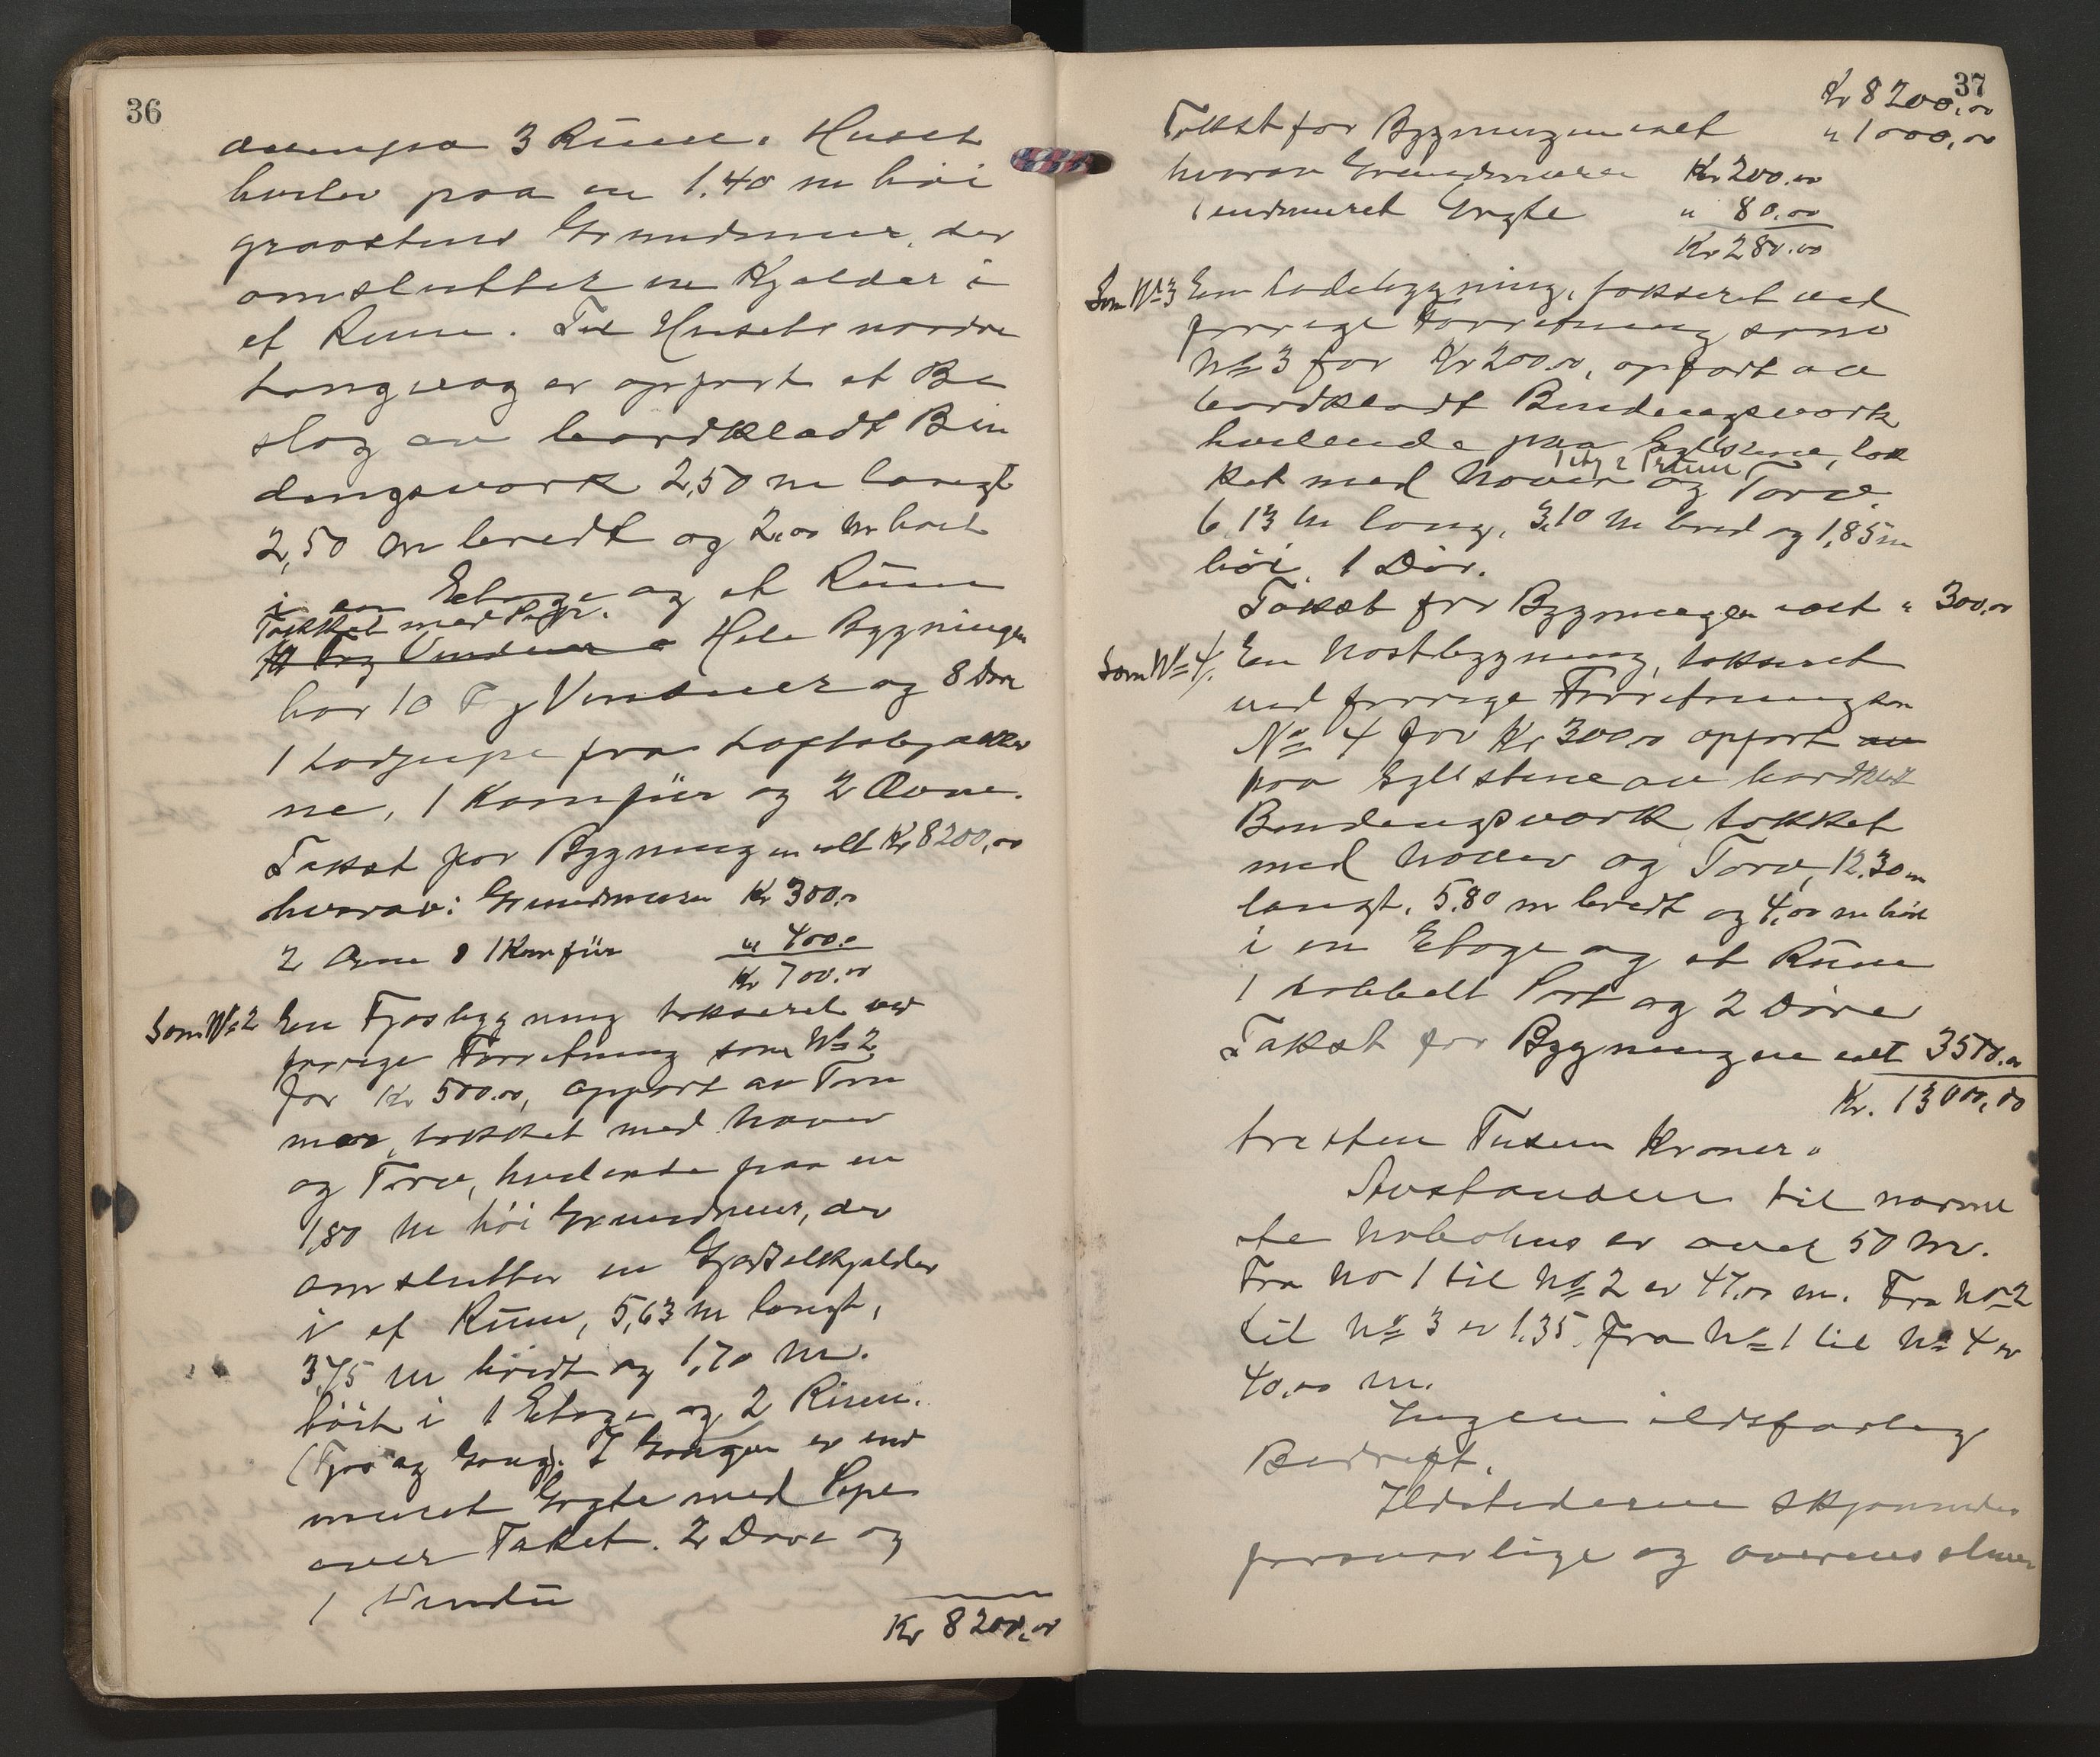 36
3 Rum. Huset
hviler paa en 1.40 m høi
graastens Grundmur, der
omslutter en Kjelder i
et Rum. Til Husets nordre
Langvæg er opført et Bi
slag av bordklædt Bin
dingsverk 2,50 m langt
2,50 m bredt og 2,00 m høit
i en Etage og et Rum
Tækket med Papir.
Vinduer Hele Bygningen
har 10 Fag Vinduer og 8 Døre
1 fra Loftsbjælker
ne, 1 Komfür og 2 Ovne.
Takst for Bygningen ialt Kr 8200,00
hvorav: Grundmuren Kr 300.00
2 Ovne & 1 Komfür " 400.00
Kr 700.00
Som No 2 En Fjøsbygning takseret ved
forrige Forretning som No 2
for Kr 500.00, opført av Tøm
mer, tækket med Næver
og Torv, hvilende paa en
1,80 m høi Grundmur, der
omslutter en Gjødselkjelder
i et Rum, 5,63 m langt,
3,75 m bredt og 1,70 m.
høit i 1 Etage og 2 Rum.
(Fjøs og Gang). I Gangen er ind
muret Gryte med Pipe
over Taket. 2 Døre og
1 Vindu
Kr 8200,00
37
Kr 8200,00
Takst for Bygningen ialt " 1000,00
hvorav Grundmuren Kr 200.00
indmuret Gryte " 80.00
Kr 280.00
Som No 3 En Ladebygning, takseret ved
forrige Forretning som
No 3 for Kr 200.00, opført av
bordklædt Bindingsverk
hvilende paa Syldstene, tæk
1 Etg & 1 Rum
ket med Næver og Torv.
6,13 m lang, 3,10 m bred og 1,85 m
høi, 1 Dør.
Takst for Bygningen ialt " 300,00
Som No 4. En Nostbygning, takseret
ved forrige Forretning som
No 4 for Kr 300.00 opført av
paa Syldstene av bordklædt
Bindingsverk tækket
med Næver og Torv, 12.30 m
langt, 5.80 m bredt og 4,00 m høit
i en Etage og et Rum
1 dobbelt Port og 2 Døre
Takst for Bygningen ialt 3500.00
Kr. 13000,00
tretten Tusen Kroner.
Avstanden til nærme
ste Nabohus er over 50 m.
Fra No 1 til No 2 er 47.00 m. Fra No 2
til No 3 er 1,35. Fra No 1 til No 4 er
40,00 m.
Ingen ildsfarlig
Bedrift.
Ildstederne skjønnedes
forsvarlige og overensstem